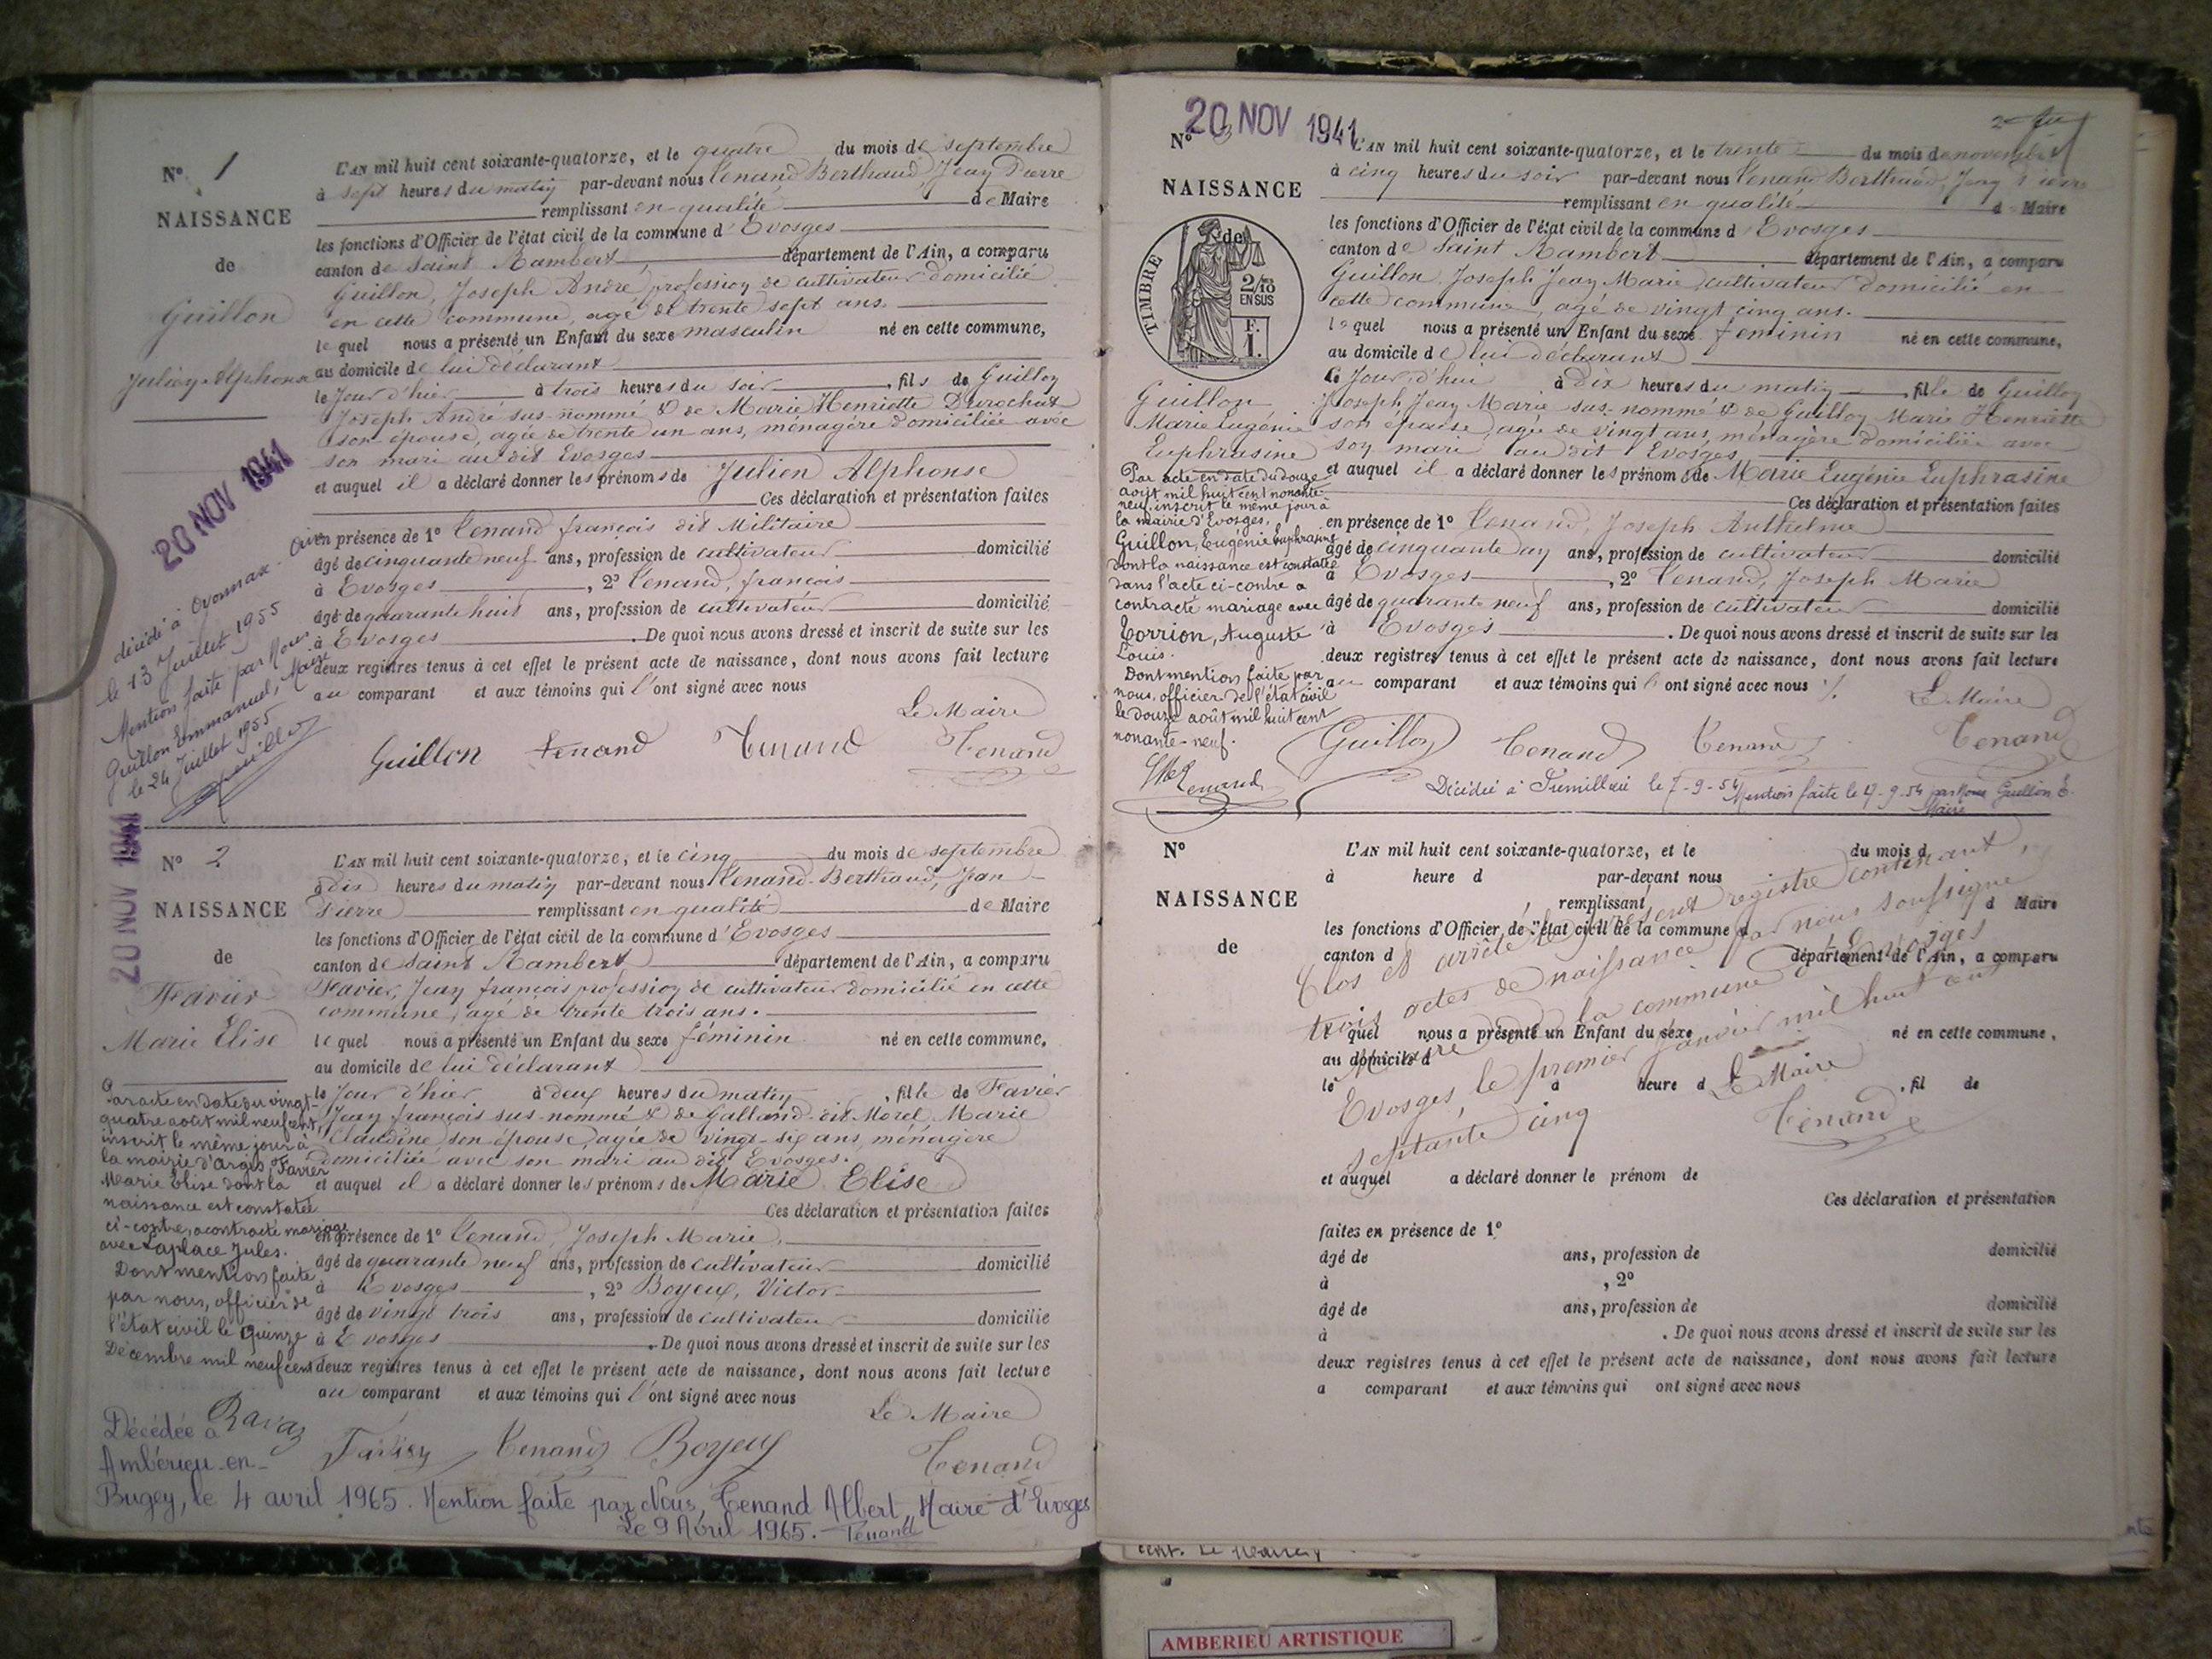 N° 1
NAISSANCE
de
Guillon
Julien Alphonse
20 NOV 1941
décédé à Oyonnax Ain
le 13 Juillet 1955
Mention faite par Nous
Guillon Emmanuel, Maire
le 24 Juillet 1955
L'AN mil huit cent soixante-quatorze, et le quatre du mois de septembre
à sept heures du matin par-devant nous Tenand Berthaud, Jean Pierre
remplissant en qualité de Maire
les fonctions d'Officier de l'état civil de la commune d'Evosges
canton de Saint Rambert département de l'Ain, a comparu
Guillon, Joseph André, profession de cultivateur domicilié
en cette commune, agé de trente sept ans.
lequel nous a présenté un Enfant du sexe masculin né en cette commune,
au domicile de lui déclarant
le Jour d'hier à trois heures du soir, fils de Guillon
Joseph André sus-nommé & de Marie Henriette Durochat
son épouse, agée de trente un ans, ménagère domiciliée avec
son mari au dit Evosges
et auquel il a déclaré donner les prénoms de Julien Alphonse
Ces déclaration et présentation faites
en présence de 1° Tenand françois dit Militaire
âgé de cinquante neuf ans, profession de cultivateur domicilié
à Evosges, 2° Tenand, françois
âgé de quarante huit ans, profession de cultivateur domicilié
à Evosges. De quoi nous avons dressé et inscrit de suite sur les
deux registres tenus à cet effet le présent acte de naissance, dont nous avons fait lecture
au comparant et aux témoins qui l'ont signé avec nous
Le Maire
Guillon Tenand Tenand Tenand
20 NOV 1941
N° 2
NAISSANCE
de
Favier
Marie Elise
Par acte en date du vingt-
quatre août mil neuf cent,
inscrit le même jour à
la mairie d'Argis, Favier
Marie Elise dont la
naissance est constatée
ci-contre, a contracté mariage
avec Laplace Jules.
Dont mention faite
par nous, officier de
l'état civil le quinze
Décembre mil neuf cent
Ravaz
L'AN mil huit cent soixante-quatorze, et le cinq du mois de septembre
à dix heures du matin par-devant nous Tenand-Berthaud, Jean
Pierre remplissant en qualité de Maire
les fonctions d'Officier de l'état civil de la commune d'Evosges
canton de Saint Rambert département de l'Ain, a comparu
Favier, Jean françois profession de cultivateur domicilié en cette
commune, agé de trente trois ans.
lequel nous a présenté un Enfant du sexe féminin né en cette commune,
au domicile de lui déclarant
le Jour d'hier à deux heures du matin, fille de Favier
Jean françois sus-nommé & de Galland dit Morel, Marie
Claudine son épouse, agée de vingt-six ans, ménagère
domiciliée avec son mari au dit Evosges.
et auquel il a déclaré donner les prénoms de Marie Elise
Ces déclaration et présentation faites
en présence de 1° Tenand, Joseph Marie,
âgé de quarante neuf ans, profession de cultivateur domicilié
à Evosges, 2° Boyeux, Victor
âgé de vingt trois ans, profession de cultivateur domicilié
à Evosges. De quoi nous avons dressé et inscrit de suite sur les
deux registres tenus à cet effet le présent acte de naissance, dont nous avons fait lecture
au comparant et aux témoins qui l'ont signé avec nous
Le Maire
Favier Tenand Boyeux Tenand
Décédée à
Ambérieu-en-
Bugey, le 4 avril 1965. Mention faite par Nous, Tenand Albert, Maire d'Evosges
Le 9 Avril 1965. Tenand
20 NOV 1941
N° 3
NAISSANCE
de
TIMBRE
2/10
EN SUS
F.
1.
Guillon
Marie Eugénie
Euphrasine
Par acte en date du douze
août mil huit cent nonante-
neuf, inscrit le même jour à
la mairie d'Evosges,
Guillon, Eugénie Euphrasine
dont la naissance est constatée
dans l'acte ci-contre a
contracté mariage avec
Torrion, Auguste
Louis.
Dont mention faite par
nous, officier de l'état civil
le douze août mil huit cent
nonante-neuf.
L'AN mil huit cent soixante-quatorze, et le trente du mois de novembre
à cinq heures du soir par-devant nous Tenand Berthaud, Jean Pierre
remplissant en qualité d Maire
les fonctions d'Officier de l'état civil de la commune d Evosges
canton de Saint Rambert département de l'Ain, a comparu
Guillon, Joseph Jean Marie, cultivateur domicilié en
cette commune, agé de vingt cinq ans.
lequel nous a présenté un Enfant du sexe féminin né en cette commune,
au domicile de lui déclarant
le Jour d'hui à dix heures du matin, fille de Guillon
Joseph Jean Marie sus-nommé & de Guillon Marie Henriette
son épouse, agée de vingt ans, ménagère domiciliée avec
son mari au dit Evosges
et auquel il a déclaré donner les prénoms de Marie Eugénie Euphrasine
Ces déclaration et présentation faites
en présence de 1° Tenand, Joseph Anthelme
âgé de cinquante un ans, profession de cultivateur domicilié
à Evosges, 2° Tenand, Joseph Marie
âgé de quarante neuf ans, profession de cultivateur domicilié
à Evosges. De quoi nous avons dressé et inscrit de suite sur les
deux registres tenus à cet effet le présent acte de naissance, dont nous avons fait lecture
au comparant et aux témoins qui l'ont signé avec nous
Le Maire
Guillon Tenand Tenand Tenand
Décédée à le 7-9-54 Mention faite le 9-54 par Nous Guillon E.
Maire
N°
NAISSANCE
de
L'AN mil huit cent soixante-quatorze, et le du mois d
à heure d par-devant nous
remplissant d Maire
les fonctions d'Officier de l'état civil de la commune d
canton d département de l'Ain, a comparu
le quel nous a présenté un Enfant du sexe né en cette commune,
au domicile d
le à heure d, fil de
et auquel a déclaré donner le prénom de
Ces déclaration et présentation
faites en présence de 1°
âgé de ans, profession de domicilié
à , 2°
âgé de ans, profession de domicilié
à . De quoi nous avons dressé et inscrit de suite sur les
deux registres tenus à cet effet le présent acte de naissance, dont nous avons fait lecture
a comparant et aux témoins qui ont signé avec nous
Clos et arrêté le présent registre contenant,
trois actes de naissance par nous soussigné
Maire de la commune d'Evosges
Evosges le premier Janvier mil huit cent
septante cinq
Le Maire
Tenand
AMBERIEU ARTISTIQUE